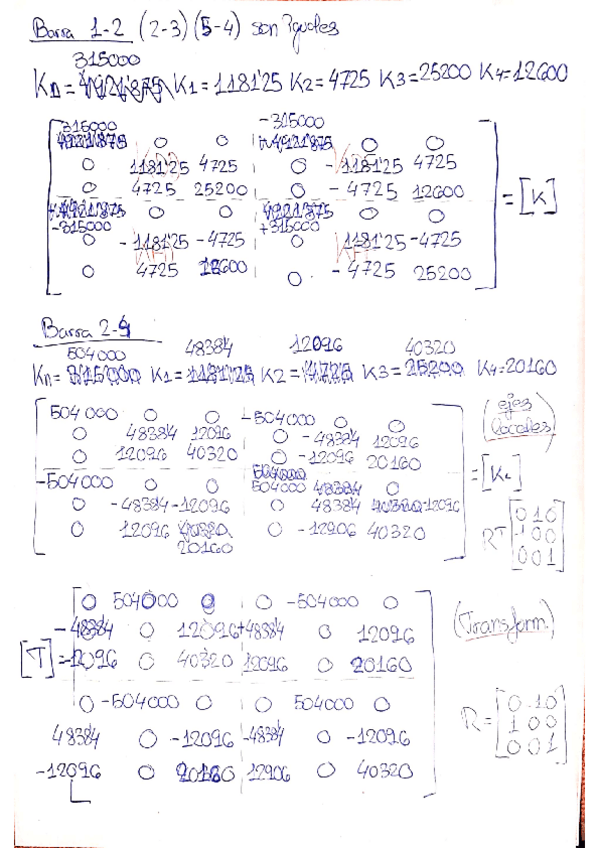 Barra 1-2 (2-3) (5-4) son iguales
315000
Kn = K1 = 1181'25 K2 = 4725 K3 = 25200 K4 = 12600
315000 -315000
0 0 0 0
0 1181'25 4725 0 -1181'25 4725
0 4725 25200 0 -4725 12600
= [K]
0 0 4921'875 0 0
-315000 +315000
0 -1181'25 -4725 1181'25 -4725
0 4725 12600 0 -4725 25200
Barra 2-4
504000 48384 12096 40320
Kn = K1 = K2 = K3 = K4 = 20160
504000 0 0 -504000 0 0
(ejes locales)
0 48384 12096 0 -48384 12096
0 12096 40320 0 -12096 20160
-504000 0 0 504000 48384 0
= [KL]
0 -48384 -12096 0 48384 -12096
0 12096 0 -12906 40320
20160
RT [0 1 0
-1 0 0
0 0 1]
0 504000 0 0 -504000 0
(Transform.)
-48384 0 12096 +48384 0 12096
[T] = -12096 0 40320 12096 0 20160
0 -504000 0 0 504000 0
48384 0 -12096 -48384 0 -12096
-12096 0 20160 12906 0 40320
R = [0 -1 0
1 0 0
0 0 1]